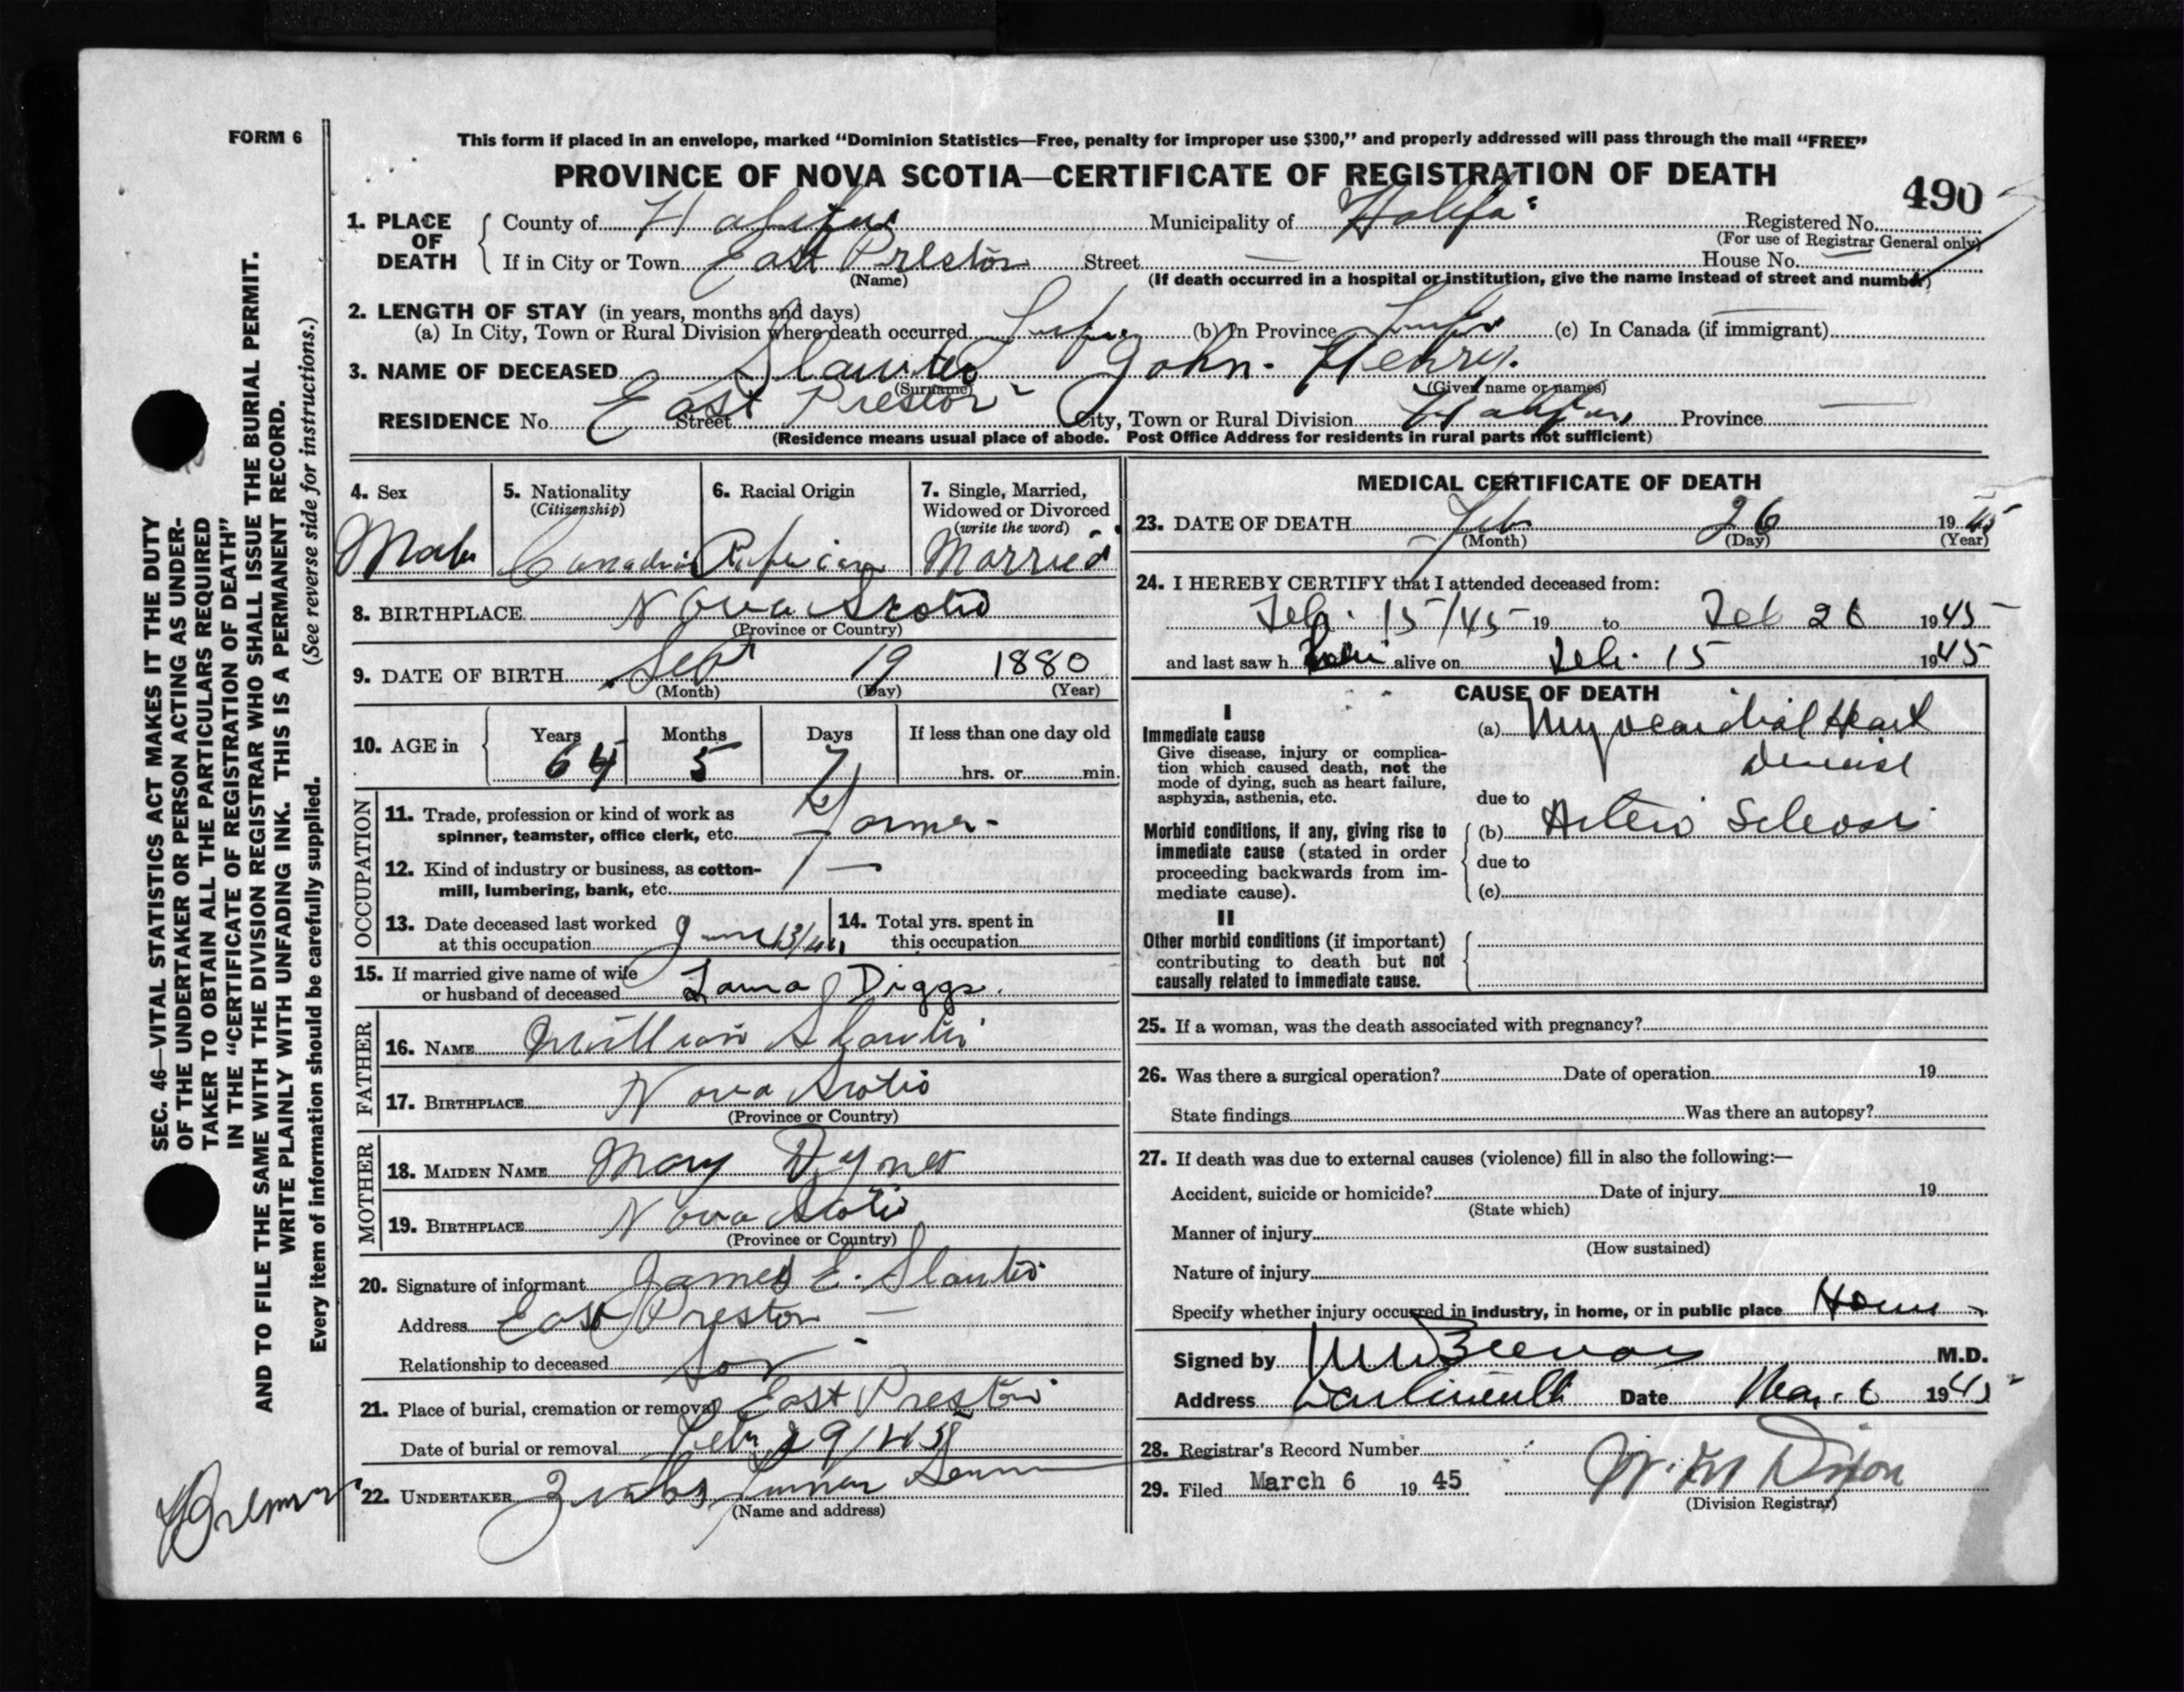 FORM 6
This form if placed in an envelope, marked "Dominion Statistics—Free, penalty for improper use $300," and properly addressed will pass through the mail "FREE"
PROVINCE OF NOVA SCOTIA—CERTIFICATE OF REGISTRATION OF DEATH
490
1. PLACE OF DEATH County of Halifax Municipality of Halifax Registered No.
(For use of Registrar General only)
If in City or Town East Preston Street — House No. —
(Name) (If death occurred in a hospital or institution, give the name instead of street and number)
2. LENGTH OF STAY (in years, months and days)
(a) In City, Town or Rural Division where death occurred (b) In Province (c) In Canada (if immigrant)
3. NAME OF DECEASED John Henry.
(Surname) (Given name or names)
RESIDENCE No. East Preston Street City, Town or Rural Division Halifax Province —
(Residence means usual place of abode. Post Office Address for residents in rural parts not sufficient)
SEC. 46—VITAL STATISTICS ACT MAKES IT THE DUTY
OF THE UNDERTAKER OR PERSON ACTING AS UNDER-
TAKER TO OBTAIN ALL THE PARTICULARS REQUIRED
IN THE "CERTIFICATE OF REGISTRATION OF DEATH"
AND TO FILE THE SAME WITH THE DIVISION REGISTRAR WHO SHALL ISSUE THE BURIAL PERMIT.
WRITE PLAINLY WITH UNFADING INK. THIS IS A PERMANENT RECORD.
(See reverse side for instructions.)
Every item of information should be carefully supplied.
4. Sex
Male
5. Nationality
(Citizenship)
Canadian
6. Racial Origin
African
7. Single, Married,
Widowed or Divorced
(write the word)
Married
8. BIRTHPLACE Nova Scotia
(Province or Country)
9. DATE OF BIRTH Sep 19 1880
(Month) (Day) (Year)
10. AGE in Years 64 Months 5 Days 7 If less than one day old
hrs. or min.
OCCUPATION
11. Trade, profession or kind of work as
spinner, teamster, office clerk, etc. Farmer
12. Kind of industry or business, as cotton-
mill, lumbering, bank, etc. —
13. Date deceased last worked
at this occupation
14. Total yrs. spent in
this occupation
15. If married give name of wife
or husband of deceased Laura Diggs.
FATHER
16. NAME William
17. BIRTHPLACE Nova Scotia
(Province or Country)
MOTHER
18. MAIDEN NAME Mary
19. BIRTHPLACE Nova Scotia
(Province or Country)
20. Signature of informant James E.
Address East Preston —
Relationship to deceased Son
21. Place of burial, cremation or removal East Preston
Date of burial or removal
22. UNDERTAKER
(Name and address)
MEDICAL CERTIFICATE OF DEATH
23. DATE OF DEATH Feb 26 1945
(Month) (Day) (Year)
24. I HEREBY CERTIFY that I attended deceased from:
Feb. 15/45 19 to Feb 26 1945
and last saw h him alive on Feb. 15 1945
CAUSE OF DEATH
I
Immediate cause
Give disease, injury or complica-
tion which caused death, not the
mode of dying, such as heart failure,
asphyxia, asthenia, etc.
(a) Myocardial Heart
Disease
due to
Morbid conditions, if any, giving rise to
immediate cause (stated in order
proceeding backwards from im-
mediate cause).
(b) Arterio Sclerosis
due to
(c)
II
Other morbid conditions (if important)
contributing to death but not
causally related to immediate cause.
25. If a woman, was the death associated with pregnancy?
26. Was there a surgical operation? Date of operation 19
State findings Was there an autopsy?
27. If death was due to external causes (violence) fill in also the following:—
Accident, suicide or homicide? Date of injury 19
(State which)
Manner of injury
(How sustained)
Nature of injury
Specify whether injury occurred in industry, in home, or in public place Home
Signed by M.D.
Address Dartmouth Date Mar. 6 1945
28. Registrar's Record Number
29. Filed March 6 19 45
(Division Registrar)